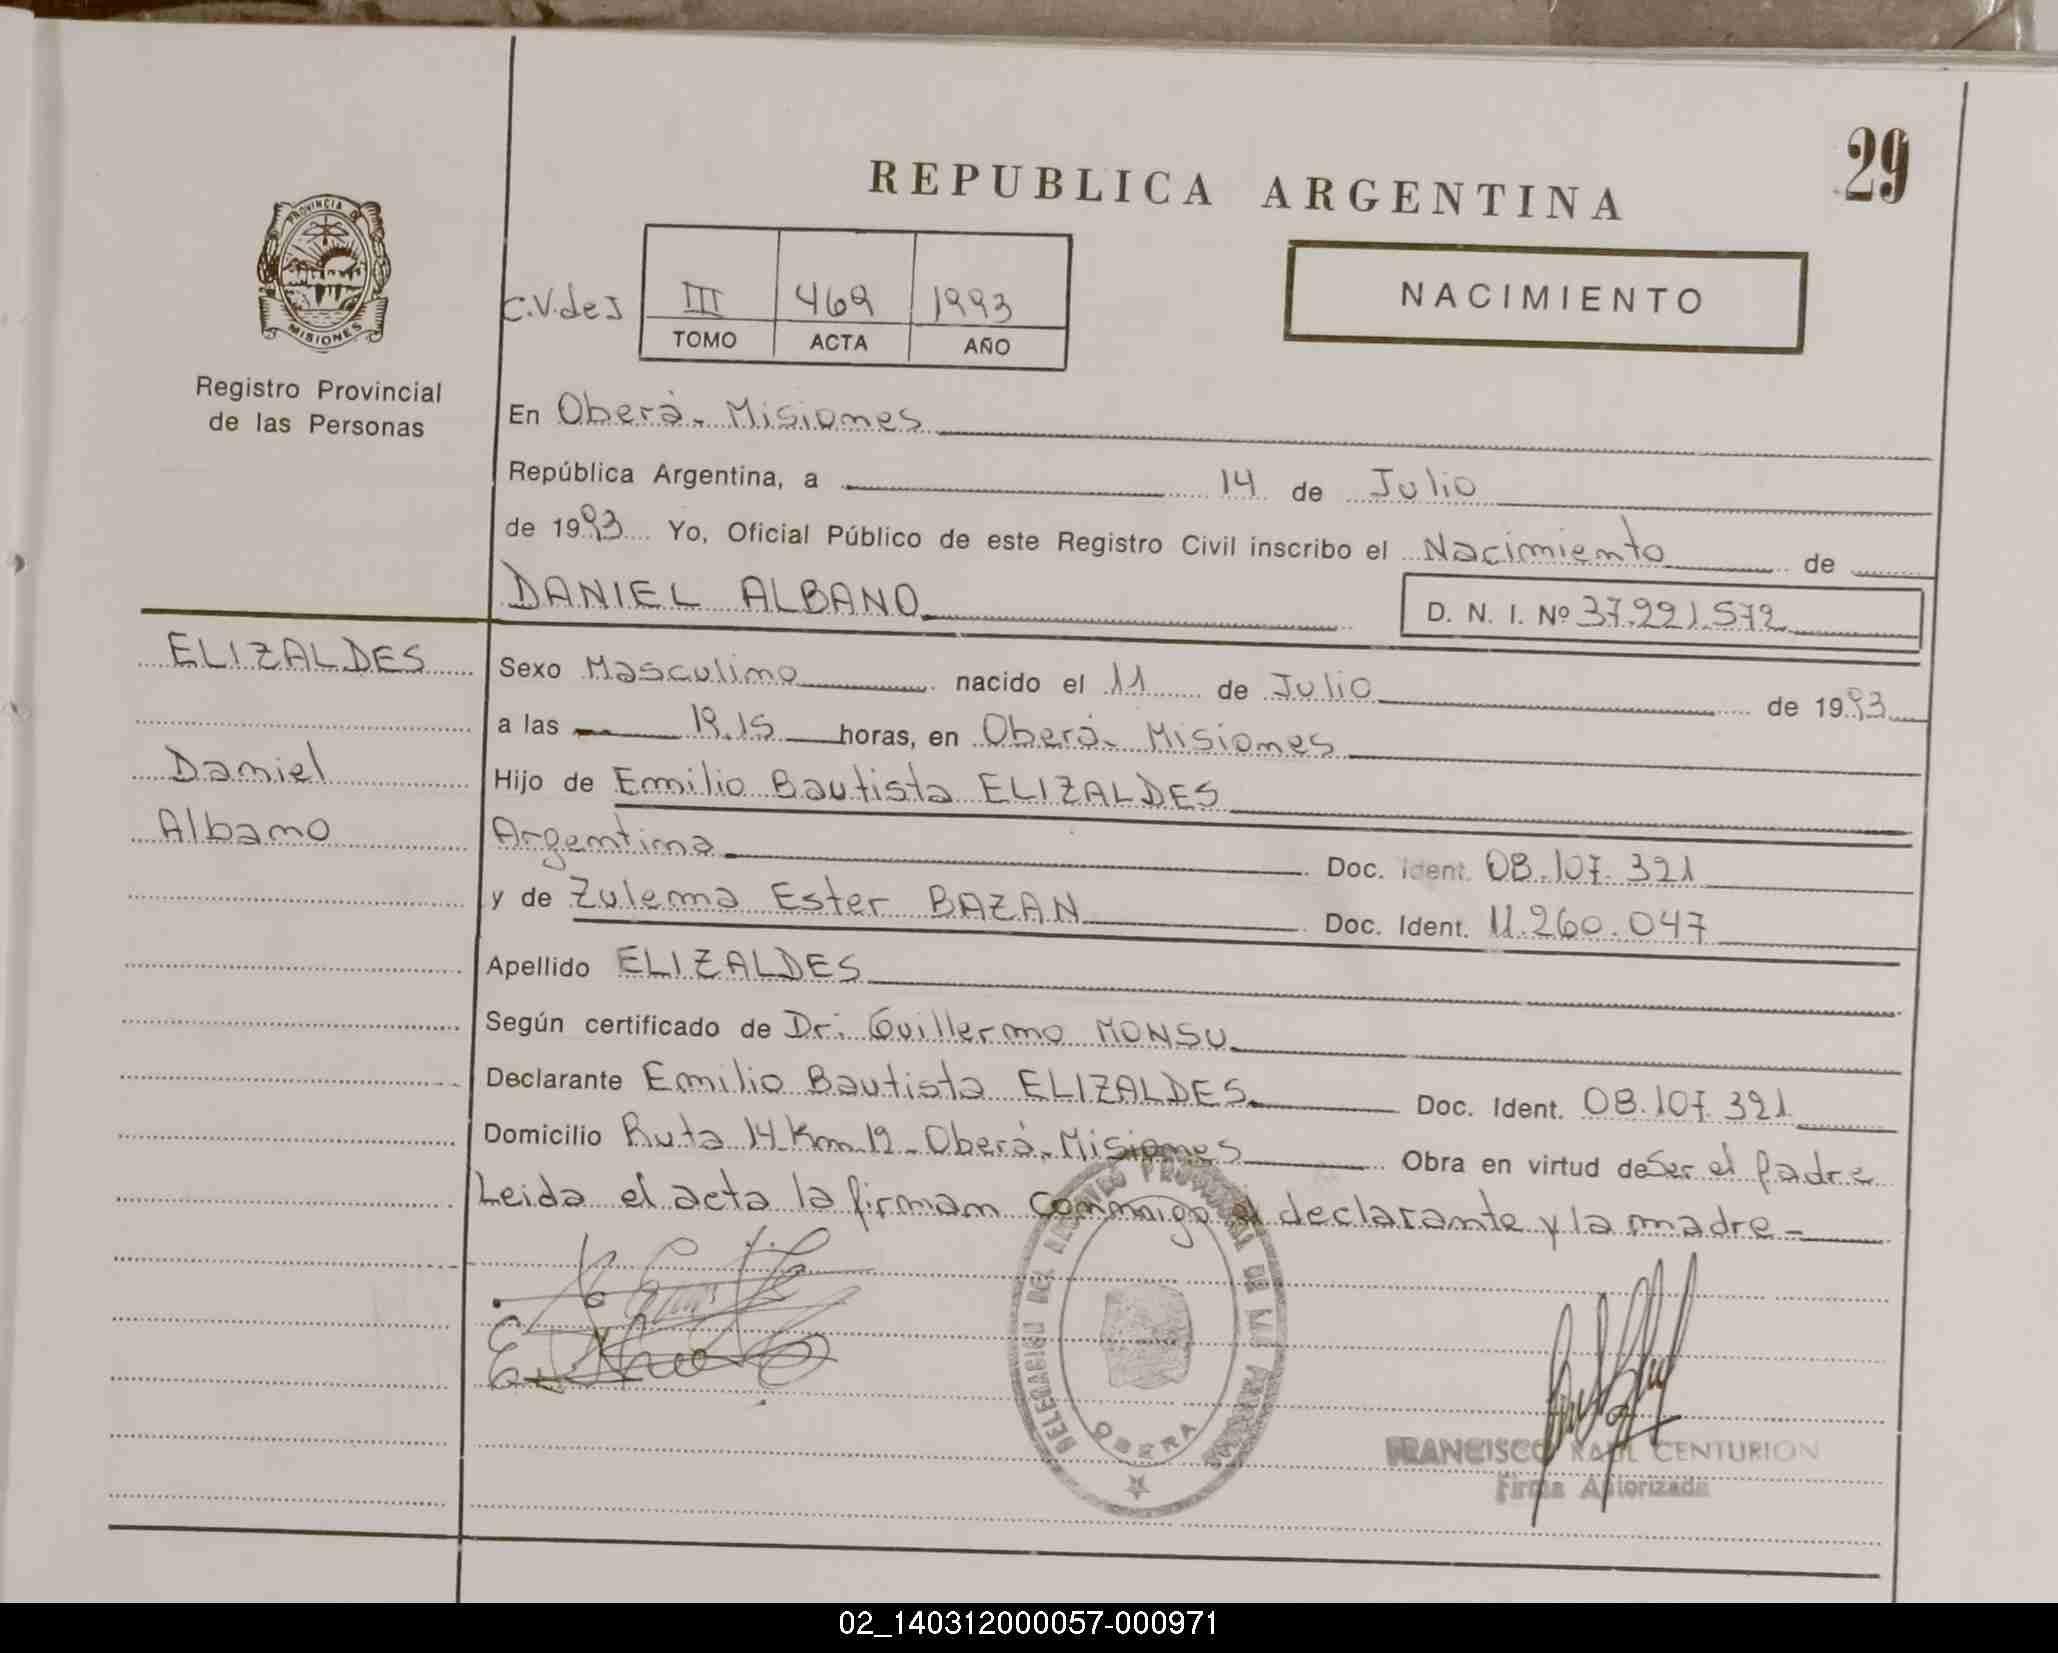 29
REPUBLICA ARGENTINA
PROVINCIA DE
MISIONES
Registro Provincial
de las Personas
NACIMIENTO
C.V.deJ III 469 1993
TOMO ACTA AÑO
En Oberá - Misiones
República Argentina, a 14 de Julio
de 1993 Yo, Oficial Público de este Registro Civil inscribo el Nacimiento de
DANIEL ALBANO D. N. I. Nº 37.221.572
ELIZALDES
Daniel
Albano
Sexo Masculino nacido el 11 de Julio de 1993
a las 19.15 horas, en Oberá - Misiones
Hijo de Emilio Bautista ELIZALDES
Argentina Doc. Ident. 08.107.321
y de Zulema Ester BAZAN Doc. Ident. 11.260.047
Apellido ELIZALDES
Según certificado de Dr: Guillermo MONSU
Declarante Emilio Bautista ELIZALDES Doc. Ident. 08.107.321
Domicilio Ruta 14 Km 12 - Oberá - Misiones Obra en virtud de Ser el padre
Leida el acta la firman conmigo el declarante y la madre -
DELEGACION DEL REGISTRO PROVINCIAL DE LAS PERSONAS
OBERA
FRANCISCO RAUL CENTURION
Firma Autorizada
02_140312000057-000971